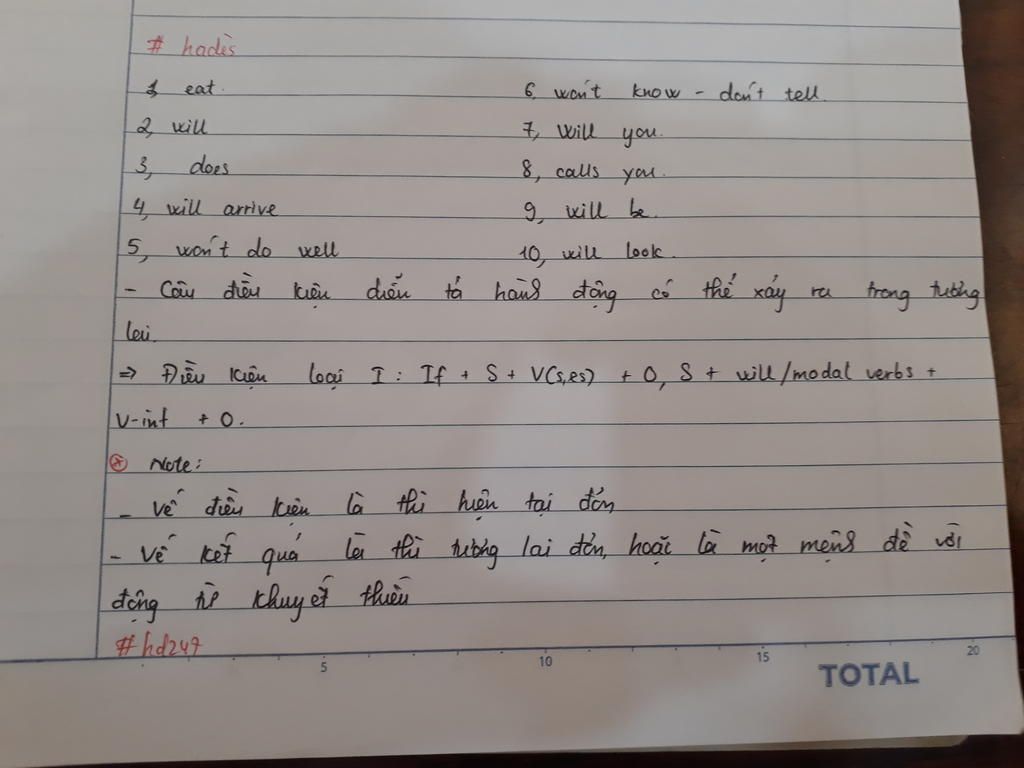 # hadès
1, eat.
6, won't know - don't tell.
2, will
7, will you.
3, does
8, calls you.
4, will arrive
9, will be.
5, won't do well
10, will look.
- Câu điều kiện diễn tả hành động có thể xảy ra trong tương
lai.
⇒ Điều kiện loại I : If + S + V(s,es) + O, S + will/modal verbs +
V-inf + O.
* Note:
- Vế điều kiện là thì hiện tại đơn
- Vế kết quả là thì tương lai đơn, hoặc là một mệnh đề với
động từ khuyết thiếu
# hd247
5 10 15 20
TOTAL